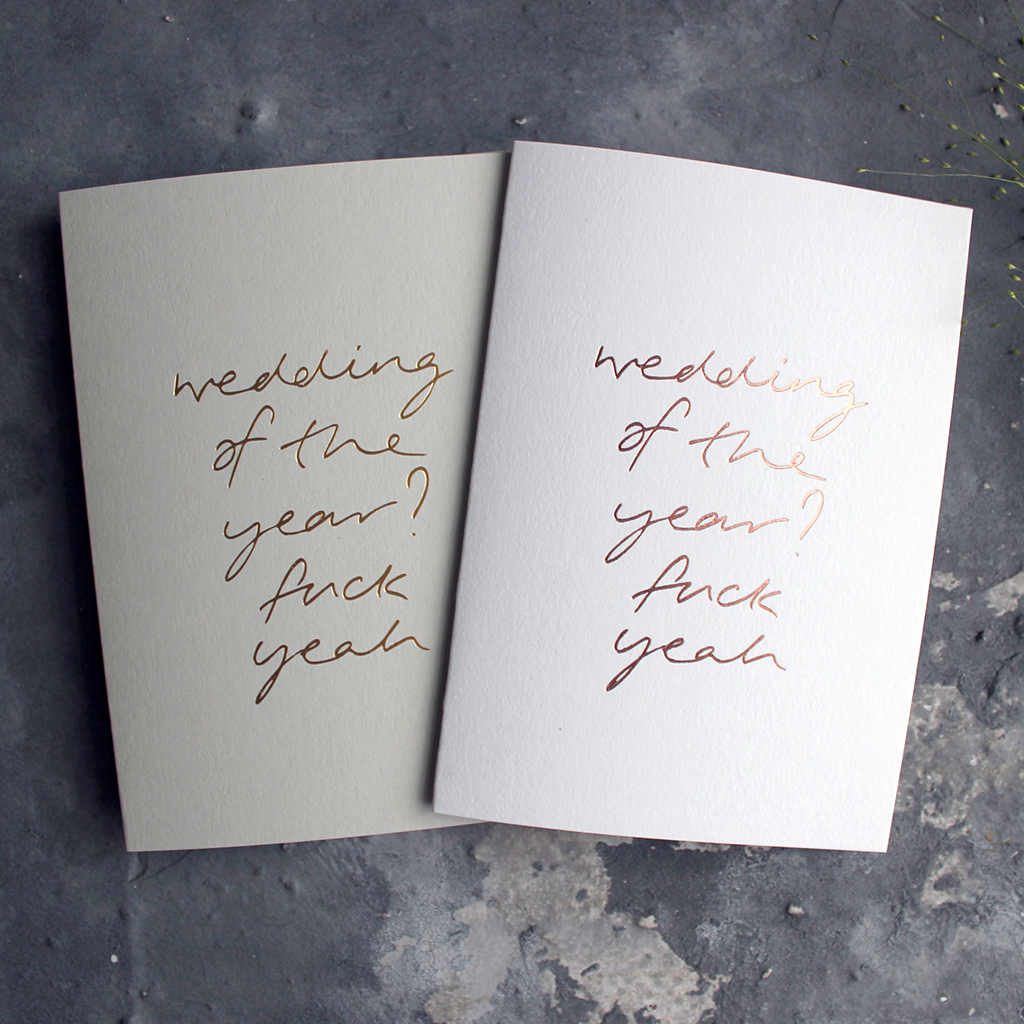 wedding
of the
year?
fuck
yeah
wedding
of the
year?
fuck
yeah